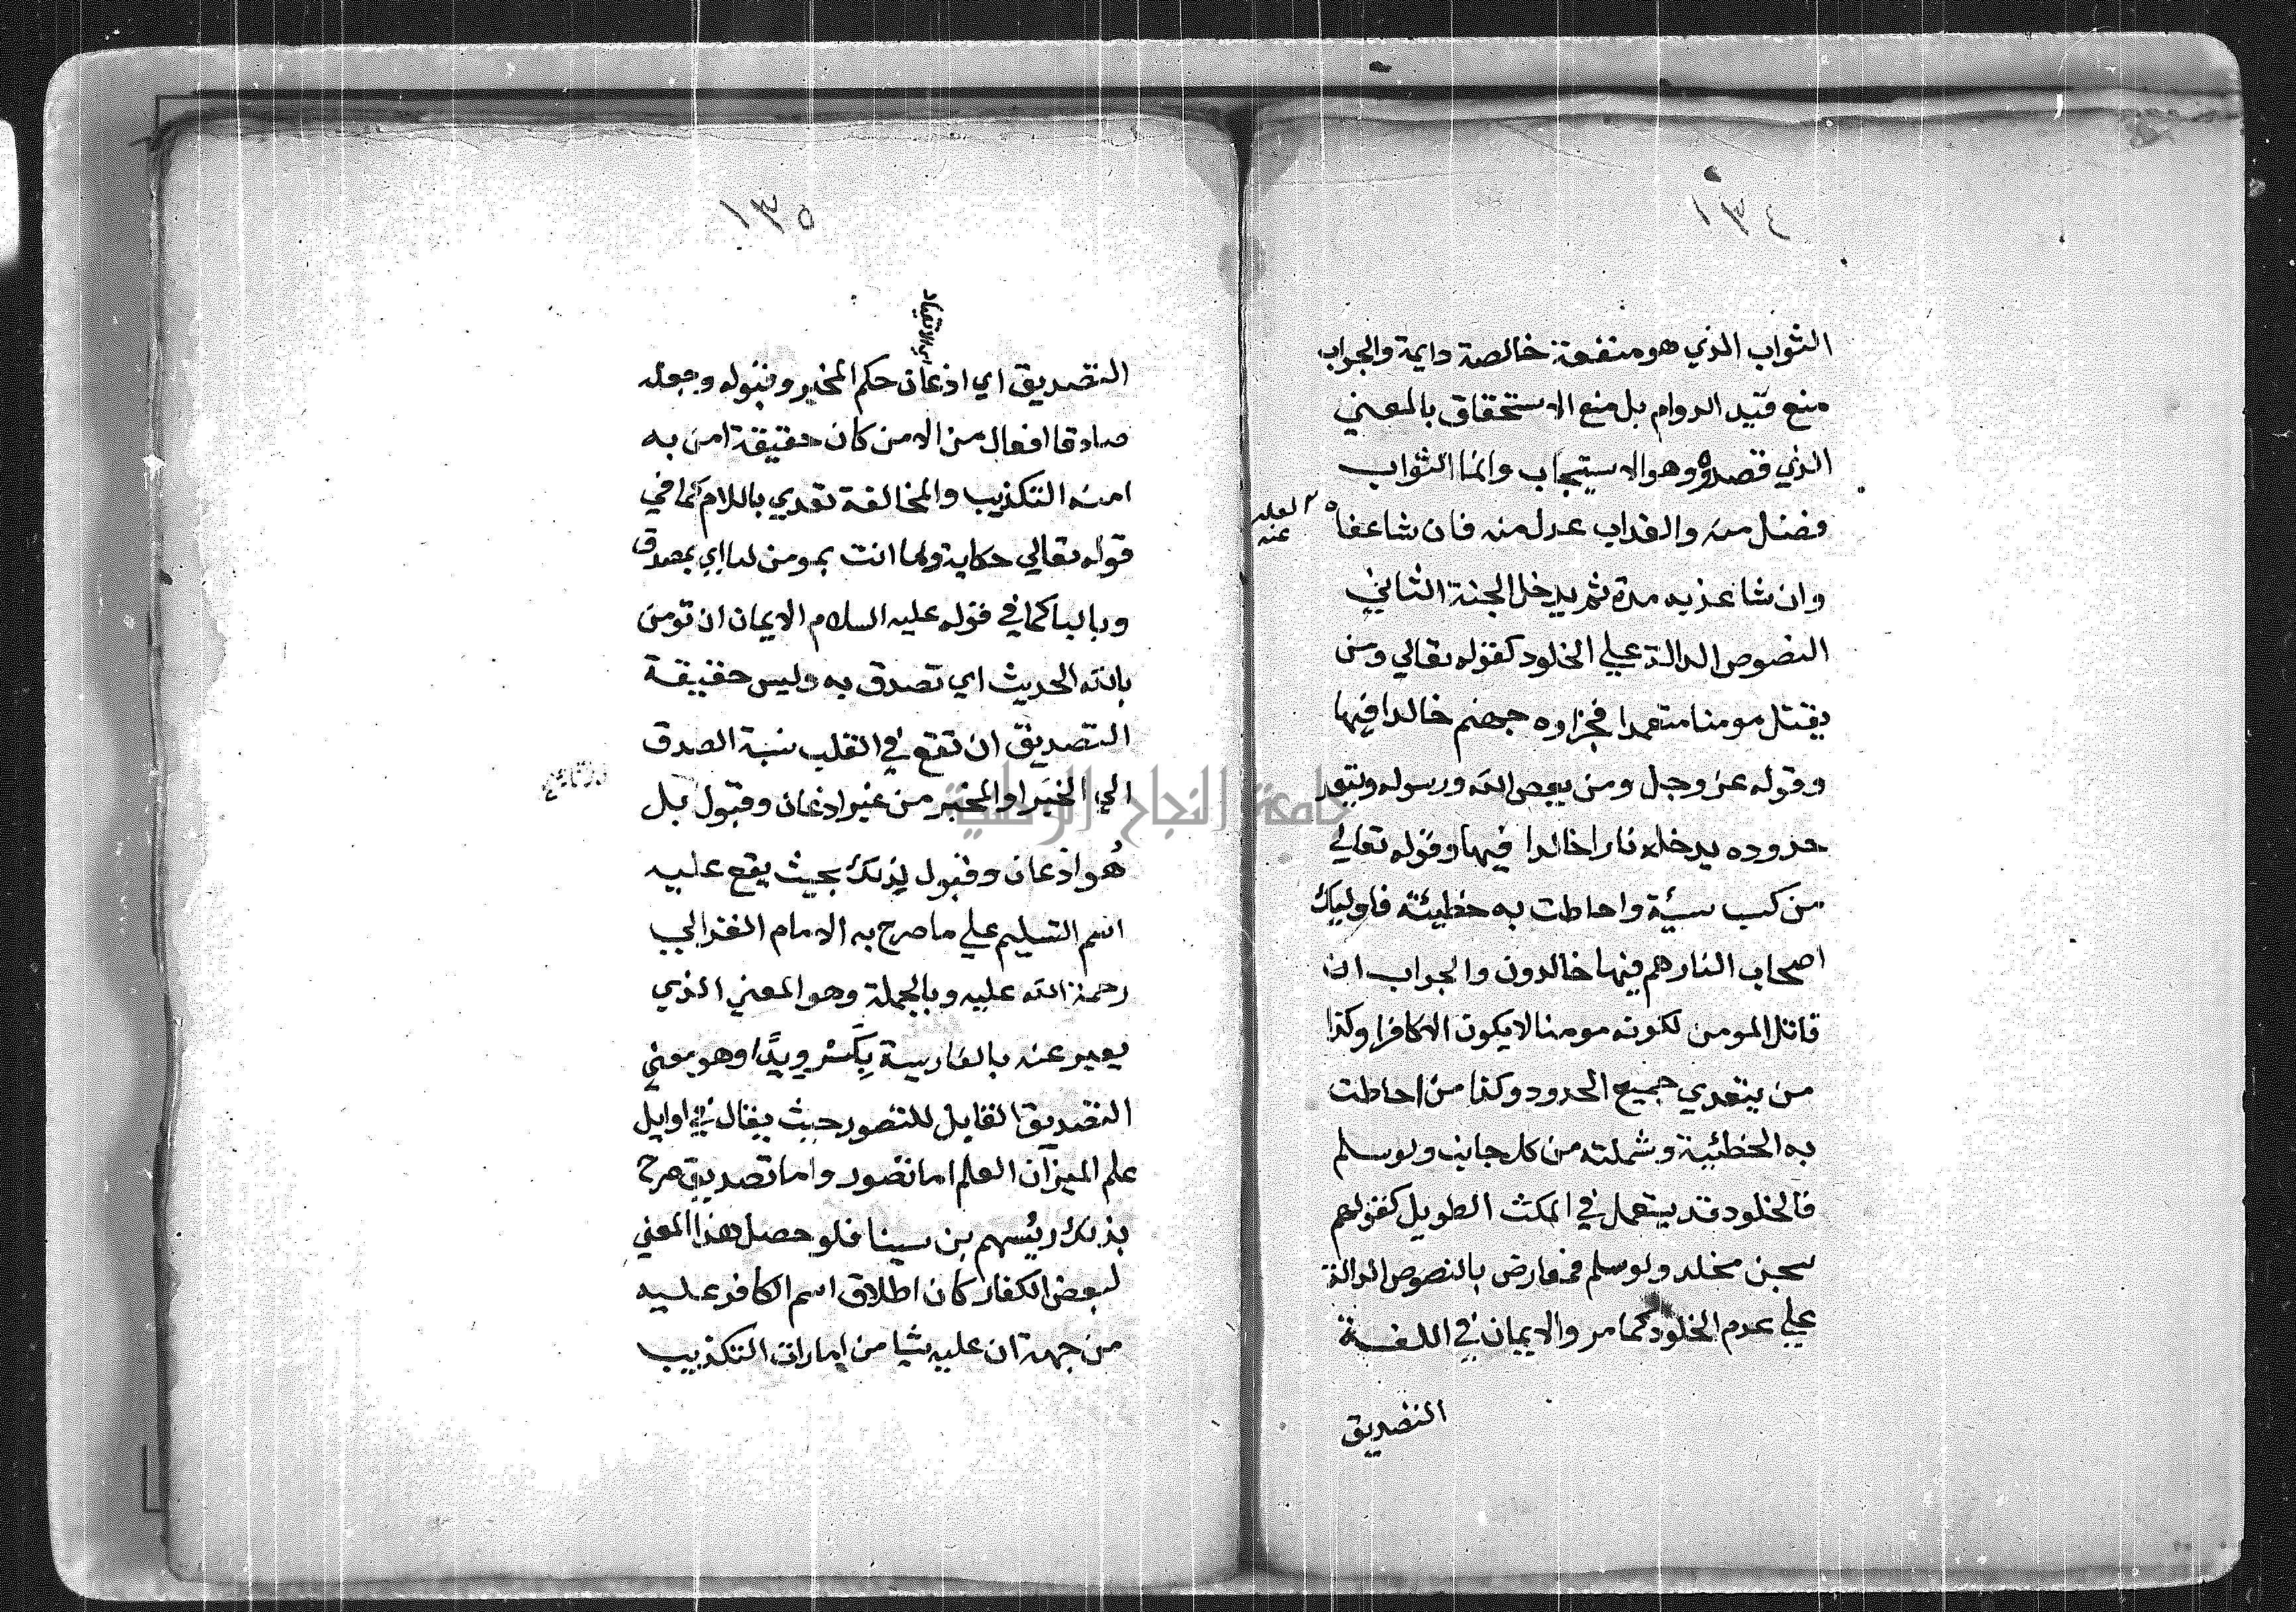 ١٣٤
الثواب الذي هو منفعة خالصة دايمة والجواب
منع قيد الدوام بل منع الاستحقاق بالمعني
الذي قصدوه وهو الاستيجاب وانما الثواب
فضل منه والعذاب عدل منه فان شا عفا
وان شا عذبه مدة ثم يدخل الجنة الثاني
النصوص الدالة علي الخلود كقوله تعالي ومن
يقتل مومنا متعمدا فجزاوه جهنم خالدا فيها
وقوله عز وجل ومن يعص الله ورسوله ويتعد
حدوده يدخله نارا خالدا فيها وقوله تعالي
من كسب سيئة واحاطت به خطيئته فاوليك
اصحاب النار هم فيها خالدون والجواب ان
قاتل المومن لكونه مومنا لا يكون الا كافرا وكذا
من يتعدي جميع الحدود وكذا من احاطت
به الخطئية وشملته من كل جانب ولو سلم
فالخلود قد يستعمل في المكث الطويل كقولهم
سجن مخلد ولو سلم فمعارض بالنصوص الدالة
علي عدم الخلود كما مر والايمان في اللغة
التصديق
١٣٥
اي الانقياد
التصديق اي اذعان حكم المخبر وقبوله وجعله
صادقا افعال من الامن كان حقيقة امن به
امنه التكذيب والمخالفة تعدي باللام كما في
قوله تعالي حكاية وما انت بمومن لنا اي بمصدق
وبالبا كما في قوله عليه السلام الايمان ان تومن
بالله الحديث اي تصدق به وليس حقيقة
التصديق ان تقع في القلب نسبة الصدق
الي الخبر او المخبر من غير اذعان وقبول بل
هُو اذعان وقبول لذلك بحيث يقع عليه
اسم التسليم علي ما صرح به الامام الغزالي
رحمة الله عليه وبالجملة وهو المعني الذي
يعبر عنه بالفارسية بكَر ويدَا وهو معني
التصديق المقابل للتصور حيث يقال في اوايل
علم الميزان العلم اما تصور واما تصديق صرح
بذلك رييُسهم بن سينا فلو حصل هذا المعني
لبعض الكفار كان اطلاق اسم الكافر عليه
من جهة ان عليه شيا من امارات التكذيب
جامعة النجاح الوطنية